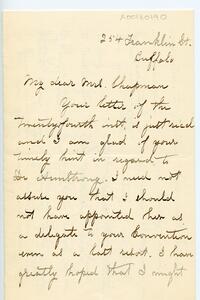 254 Franklin St.
Buffalo
My dear Mrs. Chapman
Your letter of the
twentyfourth inst. is just recd
and I am glad of your
timely hint in regard to
I need not
assure you that I should
not have appointed her as
a delegate to your Convention
even as a last resort. I have
greatly hoped that I might